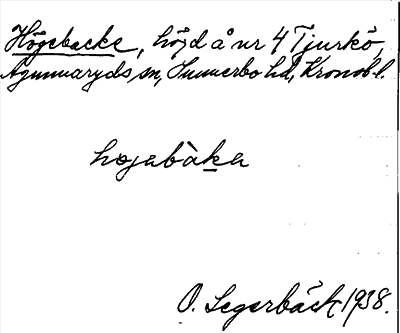 Högebacke, höjd å nr 4 Tjurkö,
Agunnaryds sn, Sunnerbo hd, Kronob. l.
högabàka
O. Segerbäck 1938.